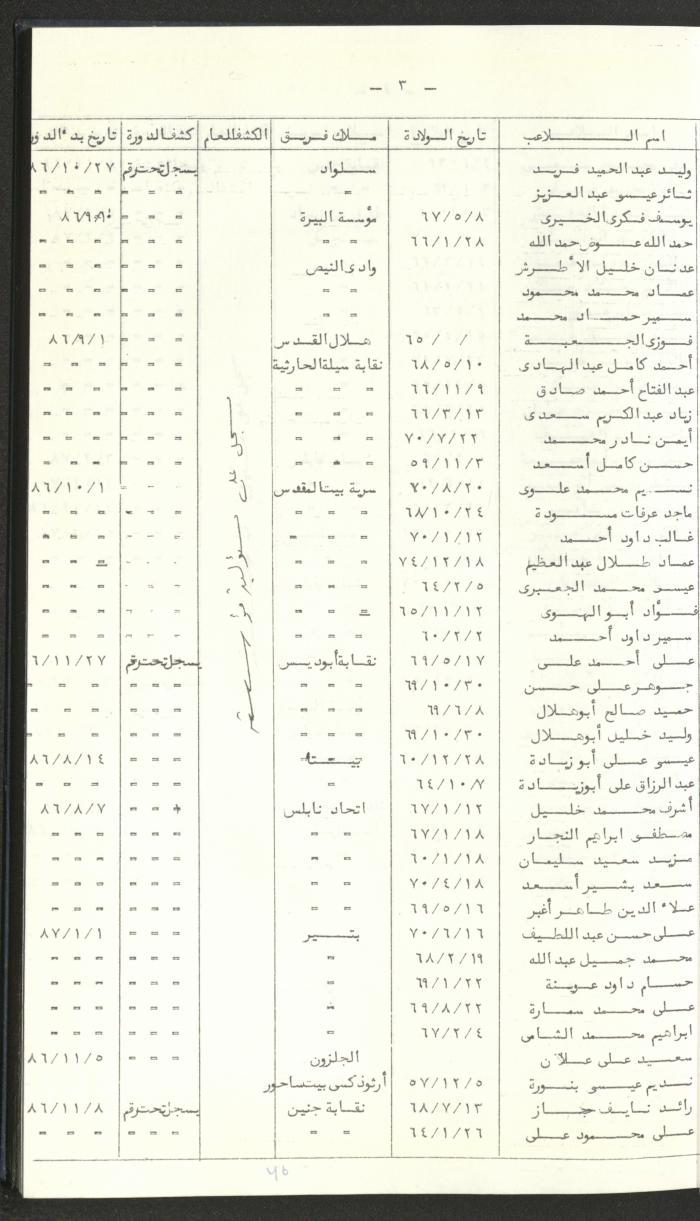 — ٣ —
اسم اللاعب تاريخ الولادة ملاك فريق الكشف العام كشف الدورة تاريخ بدء الدور
وليد عبد الحميد فريد سلواد يسجل تحت رقم ٨٦/١٠/٢٧
ثائر عيسى عبد العزيز = = = = = = =
يوسف فكرى الخيرى ٦٧/٥/٨ مؤسسة البيرة = = =
حمد الله عوض حمد الله ٦٦/١/٢٨ = = = = = = = =
عدنان خليل الأطرش وادى النيص = = = = = =
عماد محمد محمود = = = = = = = =
سمير حماد محمد = = = = = = = =
فوزى الجعبة ٦٥/ / هلال القدس = = = ٨٦/٩/١
أحمد كامل عبد الهادى ٦٨/٥/١٠ نقابة سيلة الحارثية = = = = = =
عبد الفتاح أحمد صادق ٦٦/١١/٩ = = = = = = = = =
زياد عبد الكريم سعدى ٦٦/٣/١٣ = = = = = = = = =
أيمن نادر محمد ٧٠/٧/٢٢ = = = = = = = = =
حسن كامل أسعد ٥٩/١١/٣ = = = = = = = = =
نسيم محمد علوى ٧٠/٨/٢٠ سرية بيت المقدس = = = ٨٦/١٠/١
ماجد عرفات مسودة ٦٨/١٠/٢٤ = = = = = = = = =
غالب داود أحمد ٧٠/١/١٢ = = = = = = = = =
عماد طلال عبد العظيم ٧٤/١٢/١٨ = = = = = = = = =
عيسى محمد الجعبرى ٦٤/٢/٥ = = = = = = = = =
فؤاد أبو الهوى ٦٥/١١/١٢ = = = = = = = = =
سمير داود أحمد ٦٠/٢/٢ = = = = = = = = =
على أحمد على ٦٩/٥/١٧ نقابة أبو ديس يسجل تحت رقم ٦/١١/٢٧
جوهر على حسن ٦٩/١٠/٣٠ = = = = = = = = =
حميد صالح أبو هلال ٦٩/٦/٨ = = = = = = = = =
وليد خليل أبو هلال ٦٩/١٠/٣٠ = = = = = = = = =
عيسى على أبو زيادة ٦٠/١٢/٢٨ بيتا = = ٨٦/٨/١٤
عبد الرزاق على أبو زيادة ٦٤/١٠/٧ = = = = = =
أشرف محمد خليل ٦٧/١/١٢ اتحاد نابلس = = = ٨٦/٨/٧
مصطفى ابراهيم النجار ٦٧/١/١٨ = = = = = = = =
مزيد سعيد سليمان ٦٠/١/١٨ = = = = = = = =
سعد بشير أسعد ٧٠/٤/١٨ = = = = = = = =
علاء الدين طاهر أغبر ٦٩/٥/١٦ = = = = = = = =
على حسن عبد اللطيف ٧٠/٦/١٦ بتير = = = ٨٧/١/١
محمد جميل عبد الله ٦٨/٢/١٩ = = = = = = =
حسام داود عوينة ٦٩/١/٢٢ = = = = = = =
على محمد سمارة ٦٩/٨/٢٢ = = = = = = =
ابراهيم محمد الشامى ٦٧/٢/٤ = = = = = = =
سعيد على علان الجلزون = = = ٨٦/١١/٥
نديم عيسى بنورة ٥٧/١٢/٥ أرثوذكسى بيت ساحور
رائد نايف حجاز ٦٨/٧/١٣ نقابة جنين يسجل تحت رقم ٨٦/١١/٨
على محمود على ٦٤/١/٢٦ = = = = = = = =
سجل على مسؤولية مؤسسة
٧٥